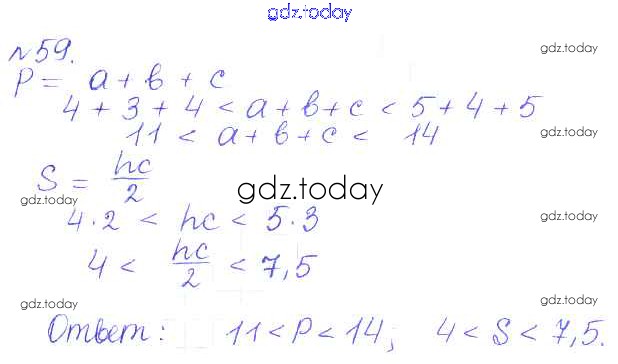 gdz.today
№59.
gdz.today
P = a + b + c
4 + 3 + 4 < a + b + c < 5 + 4 + 5
11 < a + b + c < 14
gdz.today
S = hc/2
gdz.today
gdz.today
4·2 < hc < 5·3
gdz.today
4 < hc/2 < 7,5
gdz.today
gdz.today
Ответ: 11 < P < 14; 4 < S < 7,5.